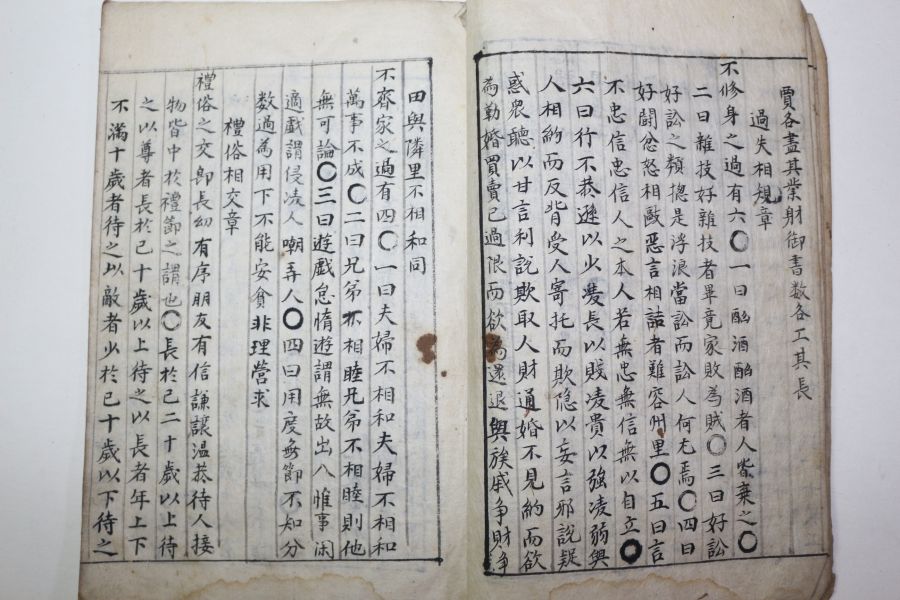 賈各盡其業射御書數各工其長
過失相規章
不修身之過有六〇一曰酗酒酗酒者人皆棄之〇
二曰雜技好雜技者畢竟家敗為賊〇三曰好訟
好訟之類摠是浮浪當訟而訟人何尤焉〇四曰
好鬪忿怒相敺惡言相詰者難容州里〇五曰言
不忠信忠信人之本人若無忠無信無以自立〇
六曰行不恭遜以少凌長以賤凌貴以強凌弱與
人相約而反背受人寄托而欺隱以妄言邪說疑
惑衆聽以甘言利說欺取人財通婚不見約而欲
為勒婚買賣已過限而欲為還退與族戚爭財爭
田與隣里不相和同
不齊家之過有四〇一曰夫婦不相和夫婦不相和
萬事不成〇二曰兄弟不相睦兄弟不相睦則他
無可論〇三曰遊戲怠惰遊謂無故出入惟事閑
適戲謂侵凌人嘲弄人〇四曰用度無節不知分
数過為用下不能安貧非理營求
禮俗相交章
禮俗之交卽長幼有序朋友有信謙讓温恭待人接
物皆中於禮節之謂也〇長於己二十歲以上待
之以尊者長於己十歲以上待之以長者年上下
不滿十歲者待之以敵者少於己十歲以下待之